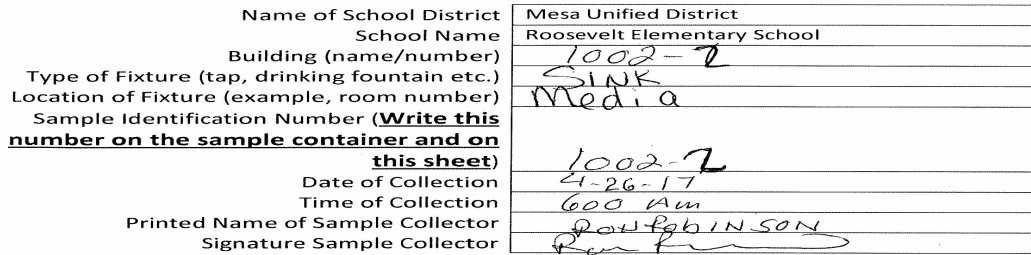 Name of School District Mesa Unified District
School Name Roosevelt Elementary School
Building (name/number) 1002-2
Type of Fixture (tap, drinking fountain etc.) SINK
Location of Fixture (example, room number) Media
Sample Identification Number (Write this
number on the sample container and on
this sheet) 1002-2
Date of Collection 4-26-17
Time of Collection 600 Am
Printed Name of Sample Collector RON RObINSON
Signature Sample Collector